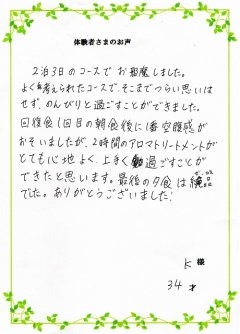 体験者さまのお声
2泊3日のコースでお邪魔しました。
よく考えられたコースで、そこまでつらい思いは
せず、のんびりと過ごすことができました。
回復食1回目の朝食後に1番空腹感が
おそいましたが、2時間のアロマトリートメントが
とても心地よく、上手く過ごすことが
できたと思います。最後の夕食は絶品
でした。ありがとうございました!
K 様
34才